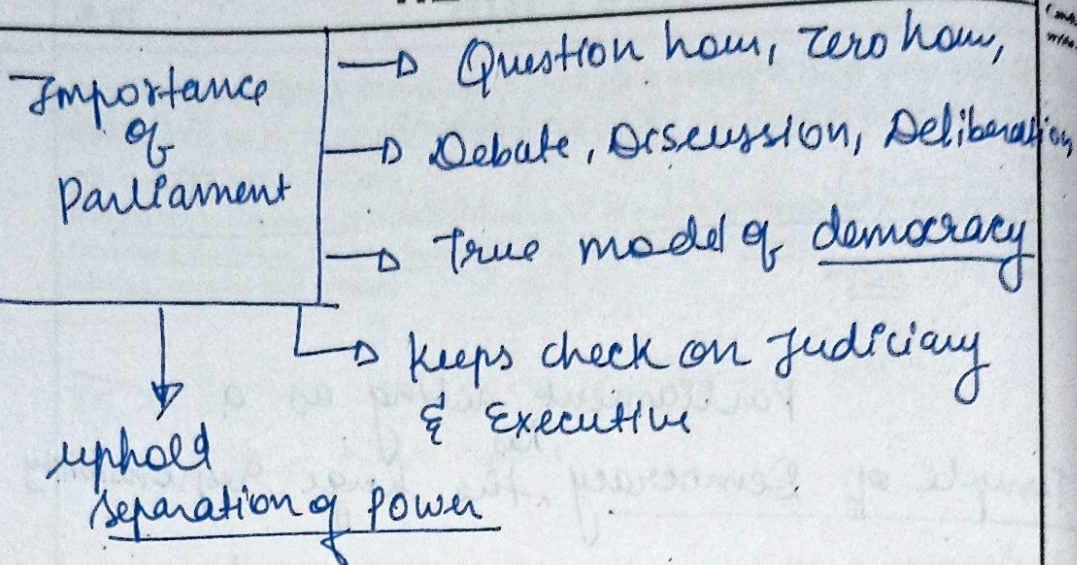 Importance
of
Parliament
Question hour, Zero hour,
Debate, Discussion, Deliberation,
True model of democracy
Keeps check on Judiciary
& Executive
uphold
separation of Power